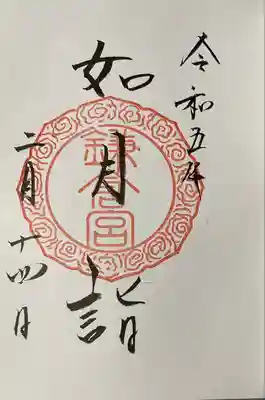 令和五年
如月詣
二月十四日
鎌倉宮